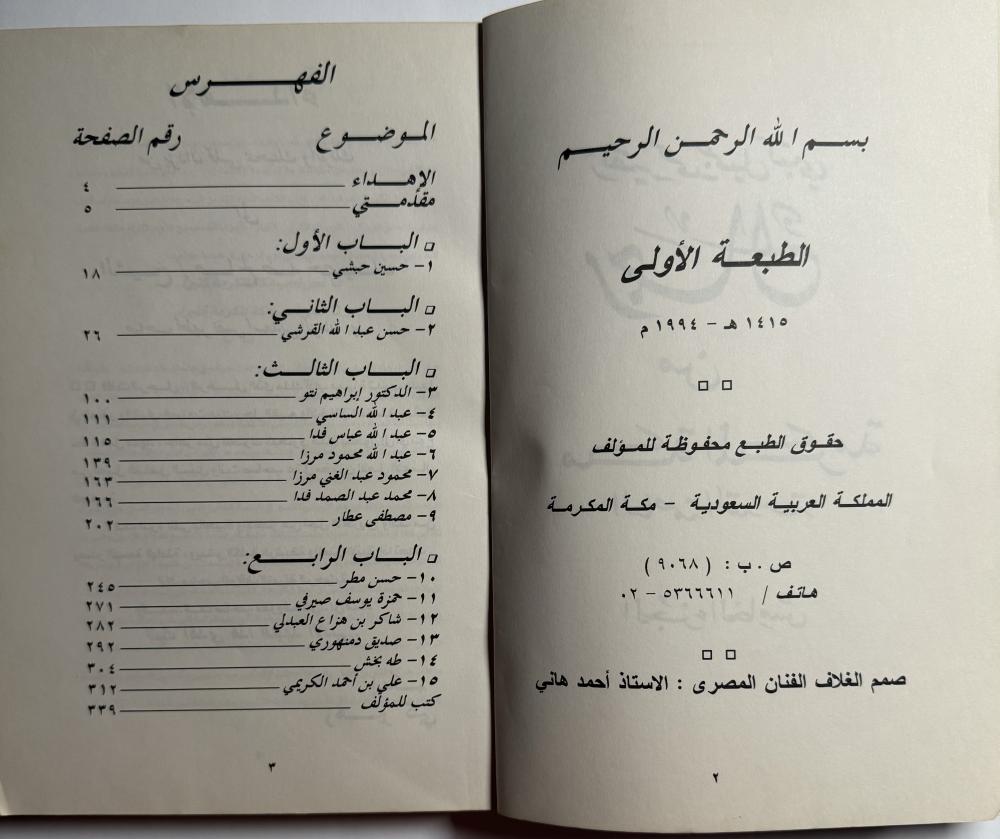 بسم الله الرحمن الرحيم
الطبعة الأولى
١٤١٥ هـ - ١٩٩٤ م
حقوق الطبع محفوظة للمؤلف
المملكة العربية السعودية - مكة المكرمة
ص . ب : ( ٩٠٦٨ )
هاتف / ٥٣٦٦٦١١ - ٠٢
صمم الغلاف الفنان المصرى : الاستاذ أحمد هاني
٢
الفهرس
الموضوع رقم الصفحة
الإهداء ٤
مقدمتي ٥
الباب الأول:
١- حسين حبشي ١٨
الباب الثاني:
٢- حسن عبد الله القرشي ٢٦
الباب الثالث:
٣- الدكتور إبراهيم نتو ١٠٠
٤- عبد الله الساسي ١١١
٥- عبد الله عباس فدا ١١٥
٦- عبد الله محمود مرزا ١٣٩
٧- محمود عبد الغني مرزا ١٦٣
٨- محمد عبد الصمد فدا ١٦٦
٩- مصطفى عطار ٢٠٢
الباب الرابع:
١٠- حسن مطر ٢٤٥
١١- حمزة يوسف صيرفي ٢٧١
١٢- شاكر بن هزاع العبدلي ٢٨٢
١٣- صديق دمنهوري ٢٩٢
١٤- طه بخش ٣٠٤
١٥- علي بن أحمد الكريمي ٣١٢
كتب للمؤلف ٣٣٩
٣